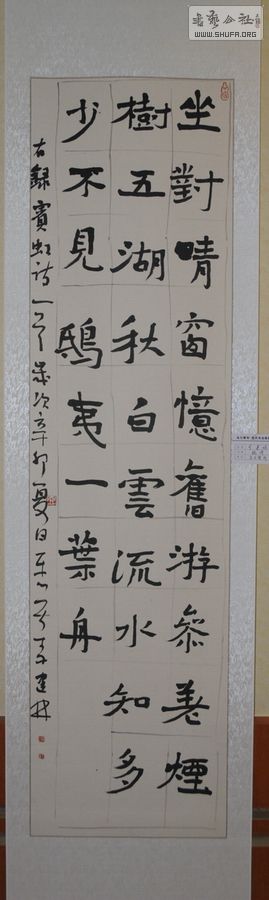 坐對晴窗憶舊游參差煙
樹五湖秋白雲流水知多
少不見鴟夷一葉舟
右錄賓虹詩一首歲次辛卯夏日
書藝公社
WWW.SHUFA.ORG